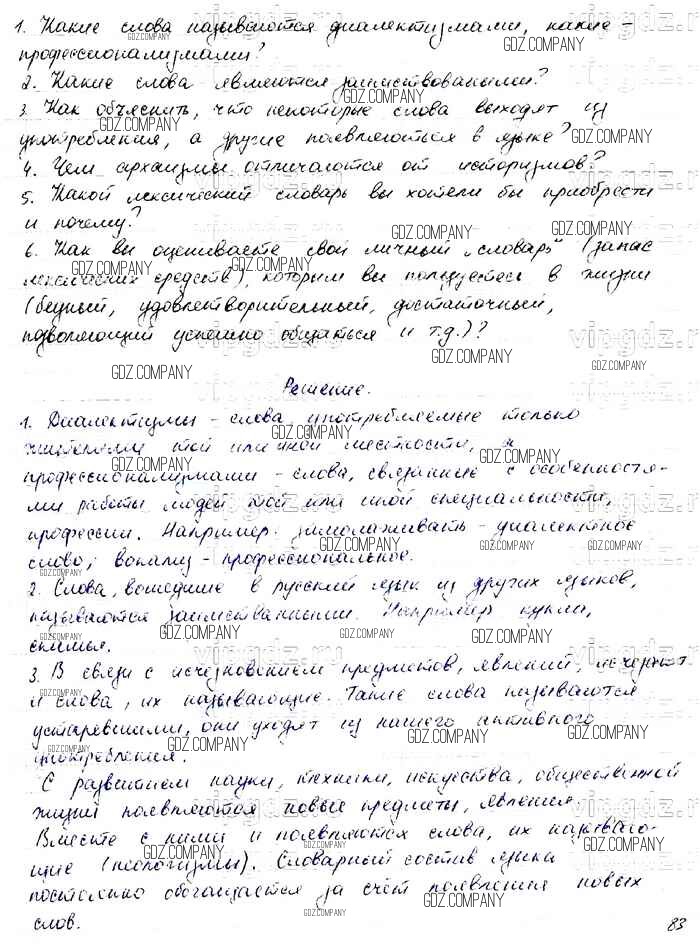 1. Какие слова называются диалектизмами, какие -
профессионализмами?
2. Какие слова являются заимствованными?
3. Как объяснить, что некоторые слова выходят из
употребления, а другие появляются в языке?
4. Чем архаизмы отличаются от историзмов?
5. Какой лексический словарь вы хотели бы приобрести
и почему?
6. Как вы оцениваете свой личный „словарь" (запас
лексических средств), которым вы пользуетесь в жизни
(бедный, удовлетворительный, достаточный,
позволяющий успешно общаться и т.д.)?
Решение.
1. Диалектизмы - слова, употребляемые только
жителями той или иной местности, а
профессионализмами - слова, связанные с особенностя-
ми работы людей той или иной специальности,
профессии. Например: диалектное
слово; вокализ - профессиональное.
2. Слова, вошедшие в русский язык из других языков,
называются заимствованными. Например кукла,
скамья.
3. В связи с исчезновением предметов, явлений, исчезают
и слова, их называющие. Такие слова называются
устаревшими, они уходят из нашего активного
употребления.
С развитием науки, техники, искусства, общественной
жизни появляются новые предметы, явления.
Вместе с ними и появляются слова, их называю-
щие (неологизмы). Словарный состав языка
постоянно обогащается за счёт появления новых
слов.
83
GDZ.COMPANY
vipgdz.ru